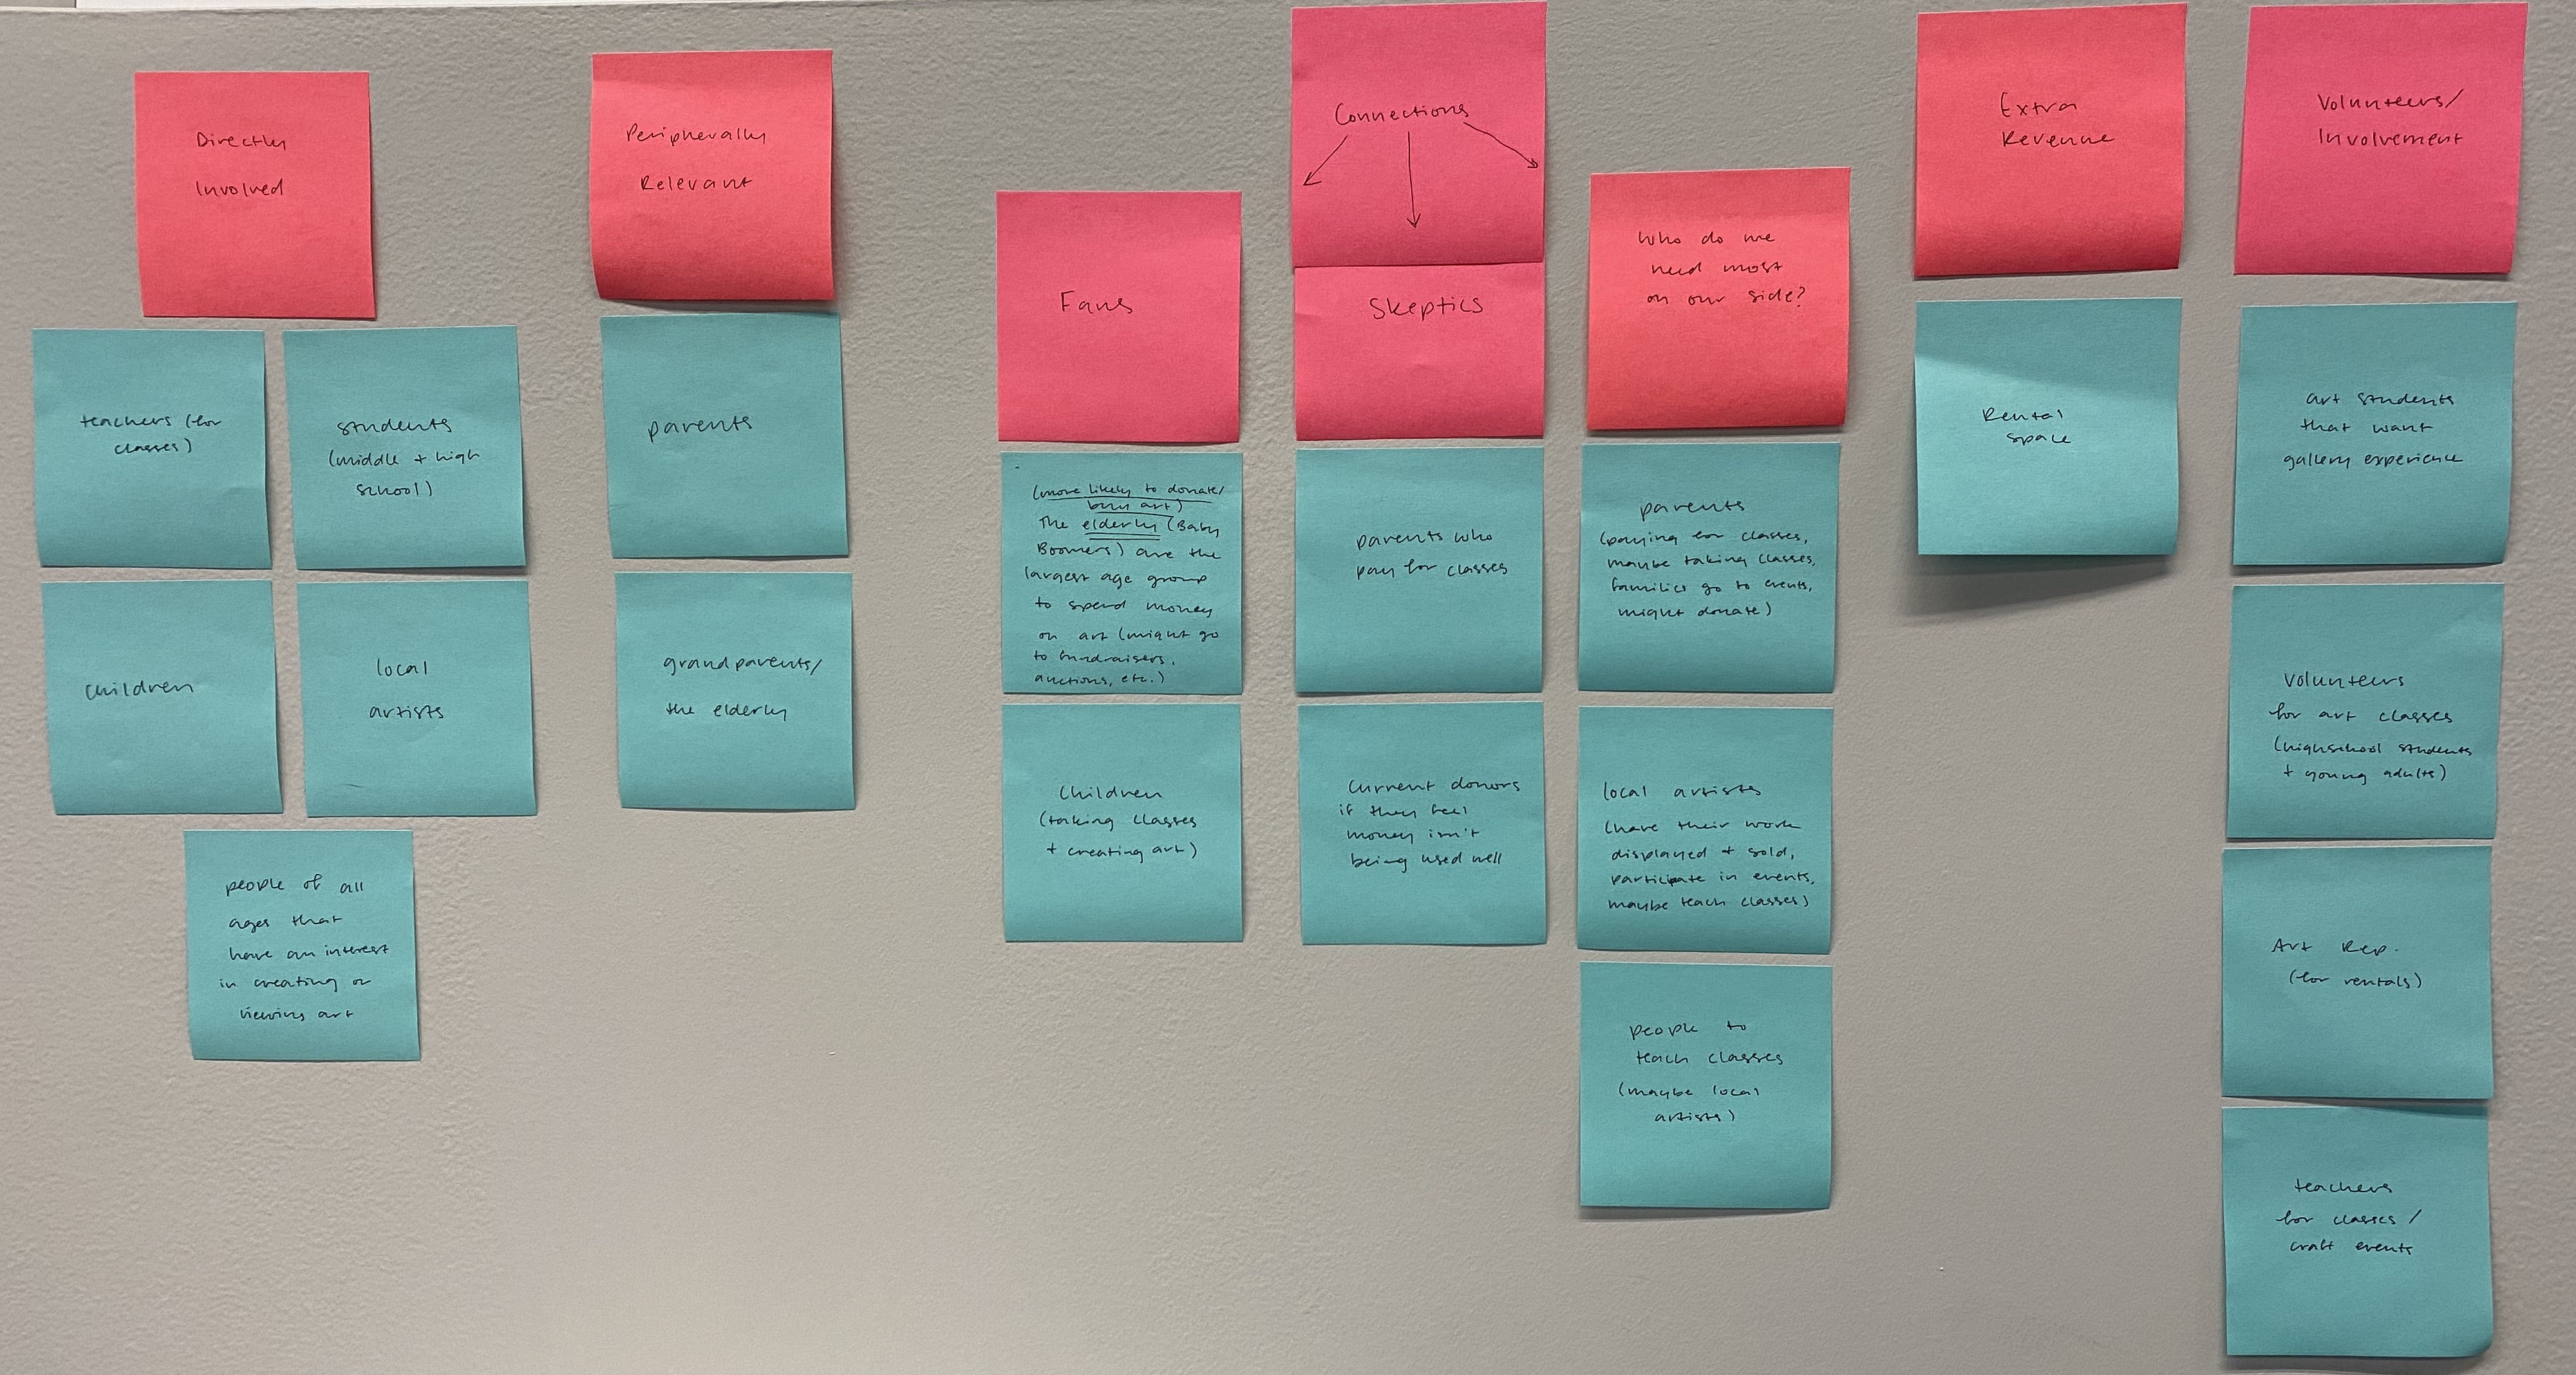 Directly
Involved
teachers (for
classes)
students
(middle + high
school)
children
local
artists
people of all
ages that
have an interest
in creating or
viewing art
Peripherally
Relevant
parents
grandparents/
the elderly
Connections
Fans
(more likely to donate/
buy art)
The elderly (Baby
Boomers) are the
largest age group
to spend money
on art (might go
to fundraisers,
auctions, etc.)
children
(taking classes
+ creating art)
Skeptics
parents who
pay for classes
current donors
if they feel
money isn't
being used well
Who do we
need most
on our side?
parents
(paying for classes,
maybe taking classes,
families go to events,
might donate)
local artists
(have their work
displayed + sold,
participate in events,
maybe teach classes)
people to
teach classes
(maybe local
artists)
Extra
Revenue
Rental
space
Volunteers/
Involvement
art students
that want
gallery experience
Volunteers
for art classes
(highschool students
+ young adults)
Art Rep.
(for rentals)
teachers
for classes /
craft events